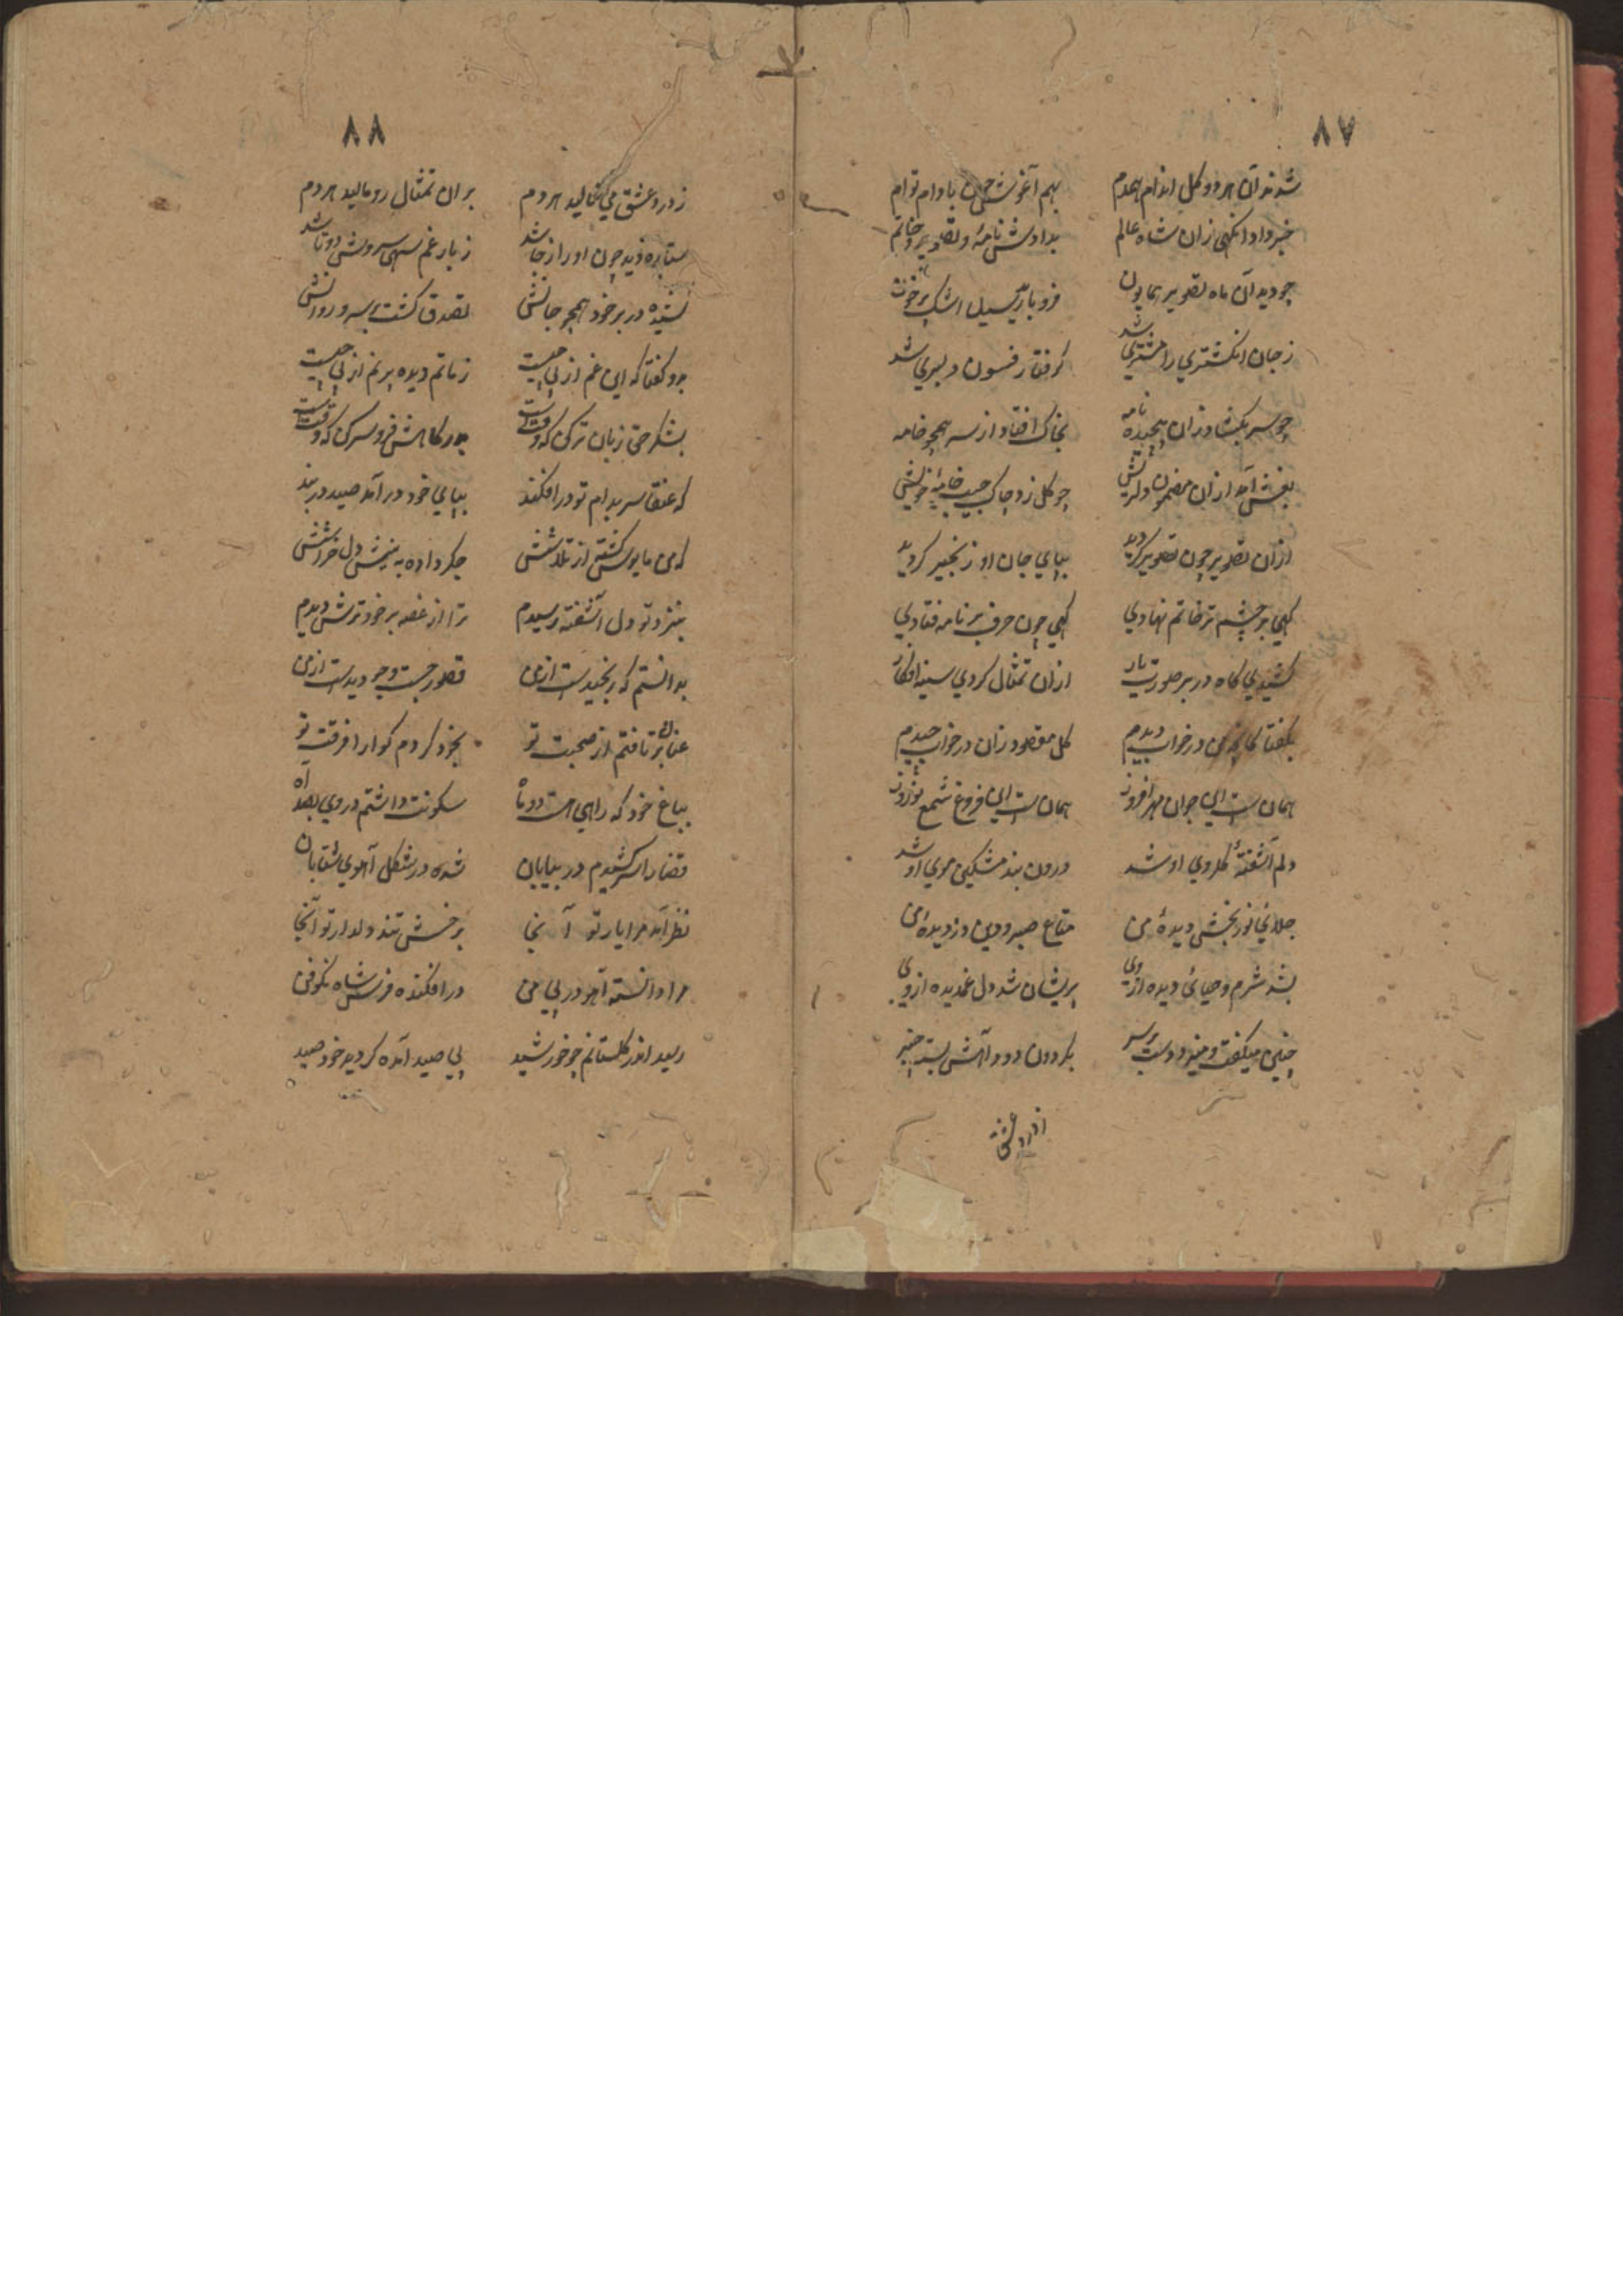 ٨٧
شدند آن هر دو گل اندام همدم بهم آغوش چون بادام توام
خبر داد انگهی زان شاه عالم بدادش نامهٔ و تصویر و خاتم
چو دید آن ماه تصویر همایون فرو بارید سیل اشک پر خون
ز جان انگشتری را مشتری شد گرفتار فسون دلبری شد
چو سر بگشاد زان پیچیده نامه بخاک افتاد از سر همچو خامه
بغش آمد از آن مضمون دلریش چو گل زد چاک جیب جامهٔ خویش
ازان تصویر چون تصویر گردید بپای جان او زنجیر گردید
گهی بر چشم تر خاتم نهادی گهی چون حرف بر نامه فتادی
کشیدی گاه در بر صورت یار ازان تمثال کردی سینه افکار
بگفتا کانچه من در خواب دیدم گل مقصود زان در خواب چیدم
همان ست این جوان مهر افروز همان ست این فروغ شمع نوروز
دلم آشفتهٔ گلروی او شد درون بند مشکین موی او شد
جلای نور بخش دیدهٔ من متاع صبر و دین دزدیدهٔ من
بشد شرم و حیای دیده از وی پریشان شد دل غمدیده از وی
چنین میگفت و میزد دست بر سر بگردون دود آهش بست چنبر
ز درد عشق
٨٨
ز درد عشق می نالید هر دم بران تمثال رو مالید هر دم
ستاره دید چون او را ز جا شد ز بار غم سهی سروش دوتا شد
کشیده در بر خود همچو جانش تصدق گشت بر سرو روانش
بدو گفتا که این غم از پی چیست ز ماتم دیده پر نم از پی چیست
بشکر حق زبان تر کن که وقت ست بدرگاهش فرو سر کن که وقت ست
که عنقا سر بدام تو در افکند بپای خود در آمد صید در بند
که من مایوس گشتم از تلاشش جگر داده به نیش دل خراشش
بنزد تو دل آشفته رسیدم ترا از غصه بر خود ترش دیدم
بدانستم که رنجیدست از من قصور جست و جو دیدست از من
عنان بر تافتم از صحبت تو بخود کردم گوارا فرقت تو
بباغ خود که راهی هست دو ماه سکونت داشتم در وی بصد آه
قضا را سر کشیدم در بیابان شده در شکل آهوی شتابان
نظر آمد مرا یار تو آنجا بر خش تند دلدار تو آنجا
مرا دانسته آهو در پی من در افکنده فرس شاه نکوفن
رسید اندر گلستانم چو خورشید پی صید آمده گردید خود صید